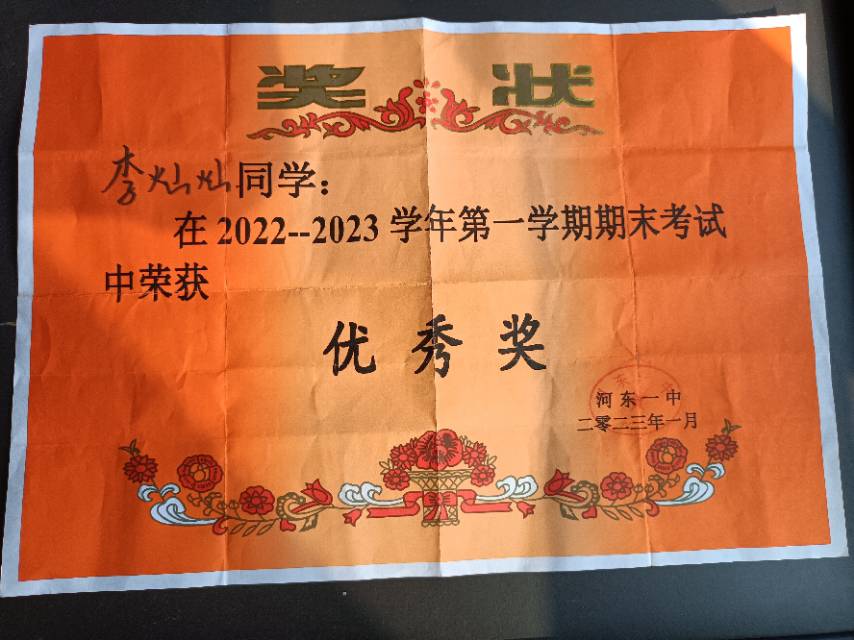 奖状
李灿灿同学：
在2022--2023学年第一学期期末考试
中荣获
优秀奖
河东一中
二零二三年一月